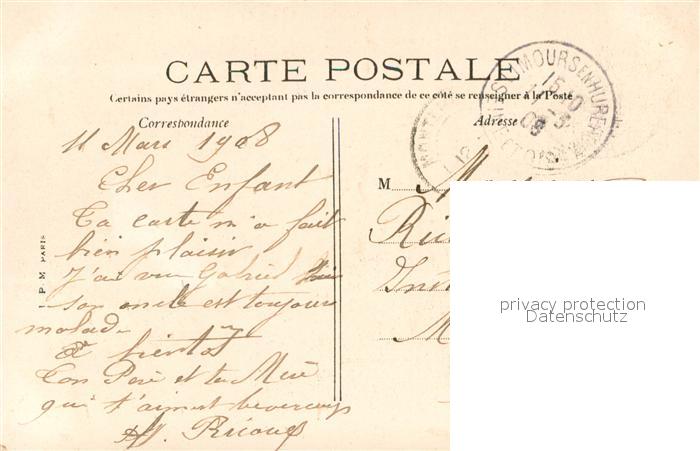 CARTE POSTALE
Certains pays étrangers n'acceptant pas la correspondance de ce côté se renseigner à la Poste
Correspondance
Adresse
11 Mars 1908
Cher Enfant
Ta carte m'a fait
bien plaisir
J'ai vu Gabriel
son oncle est toujours
malade
a bientôt
Ton Père et ta Mère
qui t'aiment beaucoup
M
I P M PARIS
privacy protection
Datenschutz